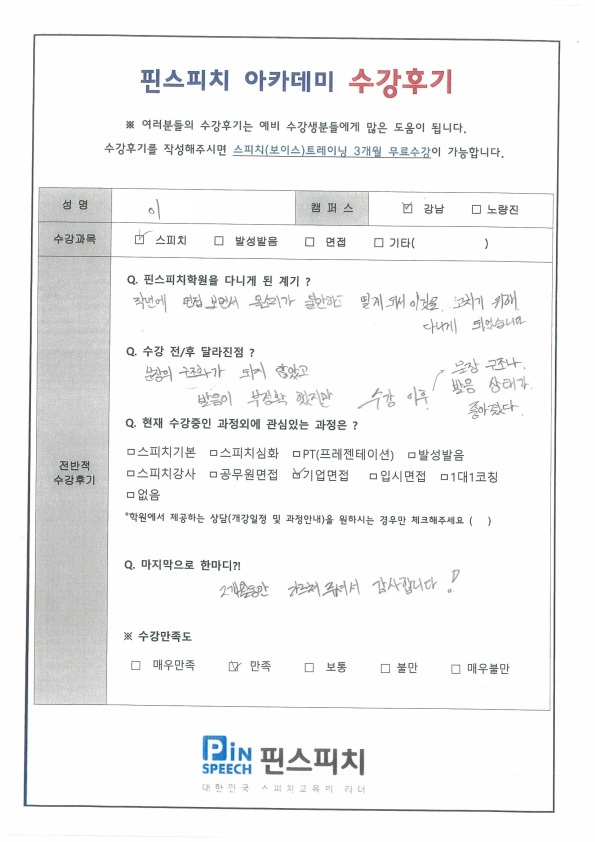 핀스피치 아카데미 수강후기
※ 여러분들의 수강후기는 예비 수강생분들에게 많은 도움이 됩니다.
수강후기를 작성해주시면 스피치(보이스)트레이닝 3개월 무료수강이 가능합니다.
성 명 이 캠 퍼 스 ☑ 강남 □ 노량진
수강과목 ☑ 스피치 □ 발성발음 □ 면접 □ 기타( )
전반적
수강후기
Q. 핀스피치학원을 다니게 된 계기 ?
작년에 면접 보면서 목소리가 불안하고 떨게 되서 이것을 고치기 위해
다니게 되었습니다
Q. 수강 전/후 달라진점 ?
문장의 구조화가 되지 않았고
발음이 부정확 했지만 수강 이후
문장 구조나,
발음 상태가
좋아졌다.
Q. 현재 수강중인 과정외에 관심있는 과정은 ?
□스피치기본 □스피치심화 □PT(프레젠테이션) □발성발음
□스피치강사 □공무원면접 ☑기업면접 □입시면접 □1대1코칭
□없음
*학원에서 제공하는 상담(개강일정 및 과정안내)을 원하시는 경우만 체크해주세요 ( )
Q. 마지막으로 한마디?!
2개월동안 가르쳐 주셔서 감사합니다!
※ 수강만족도
□ 매우만족 ☑ 만족 □ 보통 □ 불만 □ 매우불만
PiN
SPEECH 핀스피치
대한민국 스피치교육의 리더